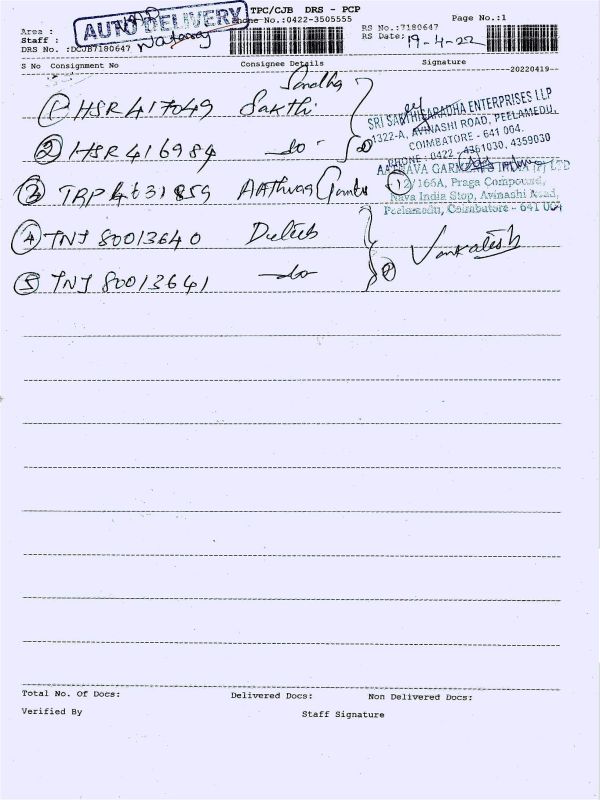 AUTO DELIVERY
TPC/CJB DRS - PCP
Phone No.:0422-3505555
Page No.:1
Area :
Staff :
DRS No. :DCJB7180647
RS No.:7180647
RS Date: 19-4-22
S No Consignment No Consignee Details Signature
--20220419--
① HSR 417049 Sakthi
SRI SAKTHISARADHA ENTERPRISES LLP
1322-A, AVINASHI ROAD, PEELAMEDU,
COIMBATORE - 641 004.
PHONE : 0422 - 4361030, 4359030
② HSR 416984 -do- ②
AATHAVA GARMENTS INDIA (P) LTD
12/166A, Praga Compound,
Nava India Stop, Avinashi Road,
Peelamedu, Coimbatore - 641 004
③ TRP 4631859 ①
④ TNJ 80013640
Venkatesh
⑤ TNJ 80013641 -do- ②
Total No. Of Docs: Delivered Docs: Non Delivered Docs:
Verified By Staff Signature